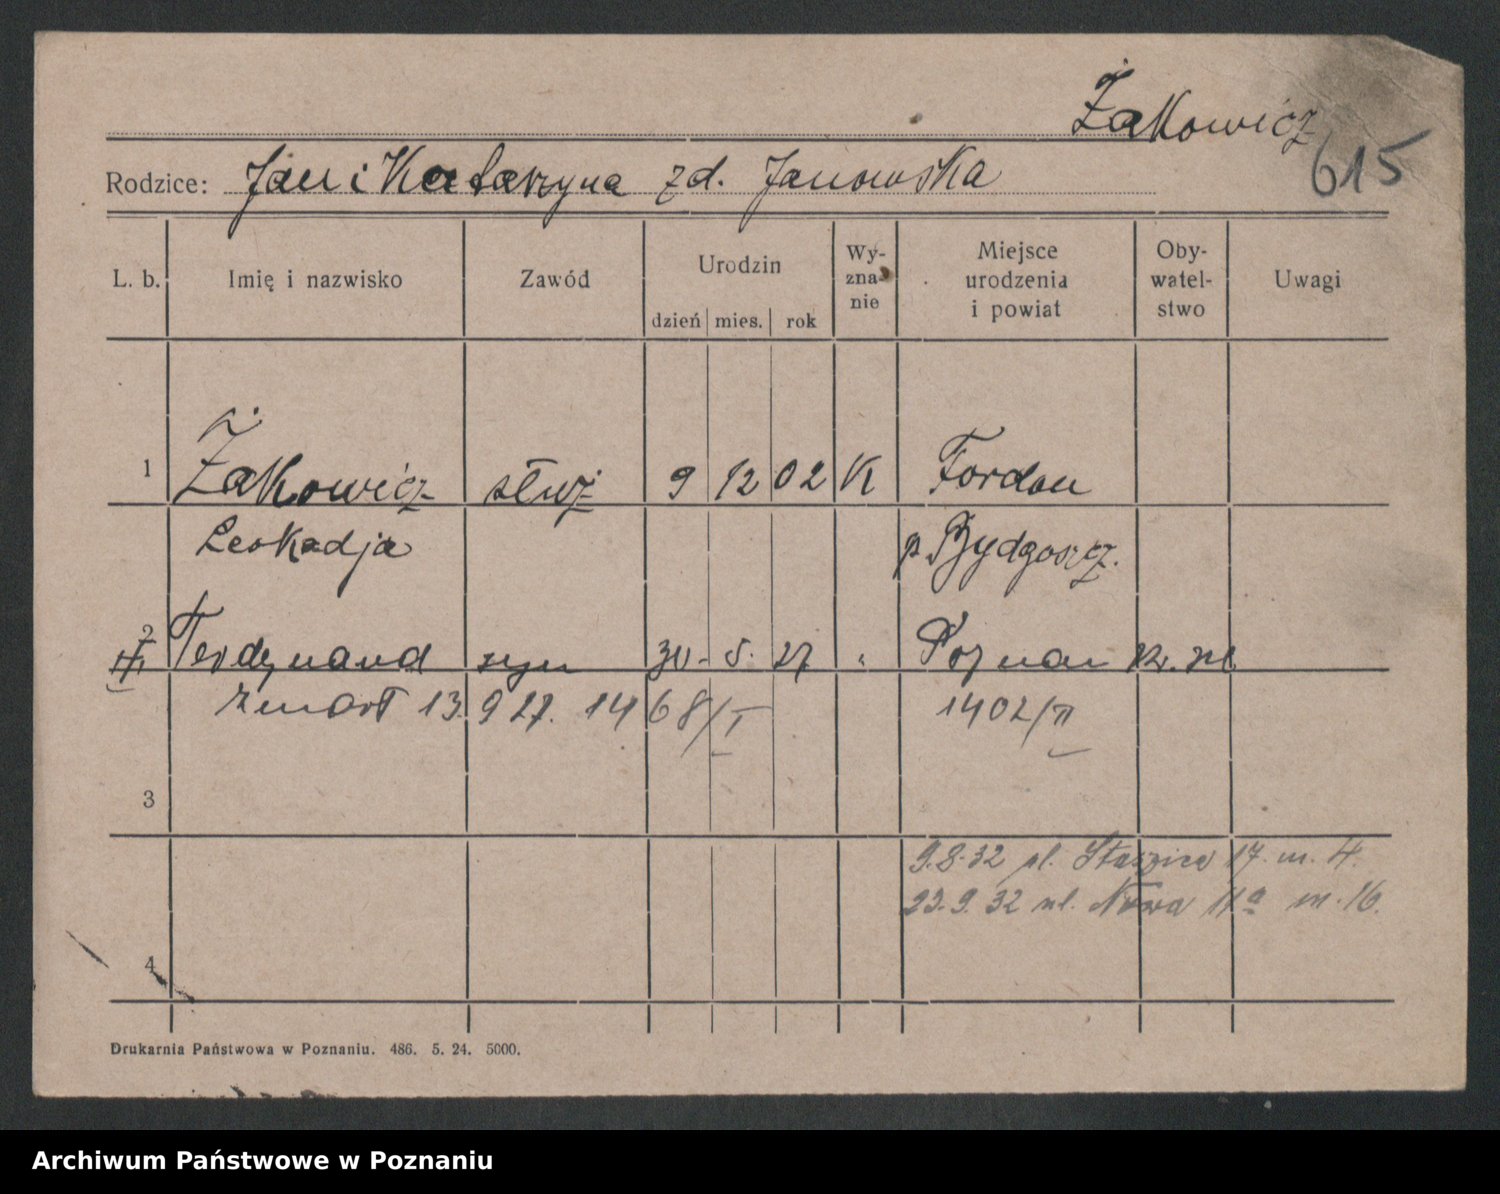 Żakowicz
615
Rodzice: Jan i Katarzyna zd. Janowska
L. b. Imię i nazwisko Zawód Urodzin dzień mies. rok Wy-zna-nie Miejsce urodzenia i powiat Oby-watel-stwo Uwagi
1 Żakowicz służ 9 12 02 K Fordon
Leokadja p Bydgoszcz.
2 Ferdynand syn 30 - 5. 27 " Poznan
zmarł 13. 9 27. 1468/I 1402/II
3
9.8.32 pl. Staszica 17. m. 4.
23.9.32 ul. Nowa 11a m. 16.
4
Drukarnia Państwowa w Poznaniu. 486. 5. 24. 5000.
Archiwum Państwowe w Poznaniu